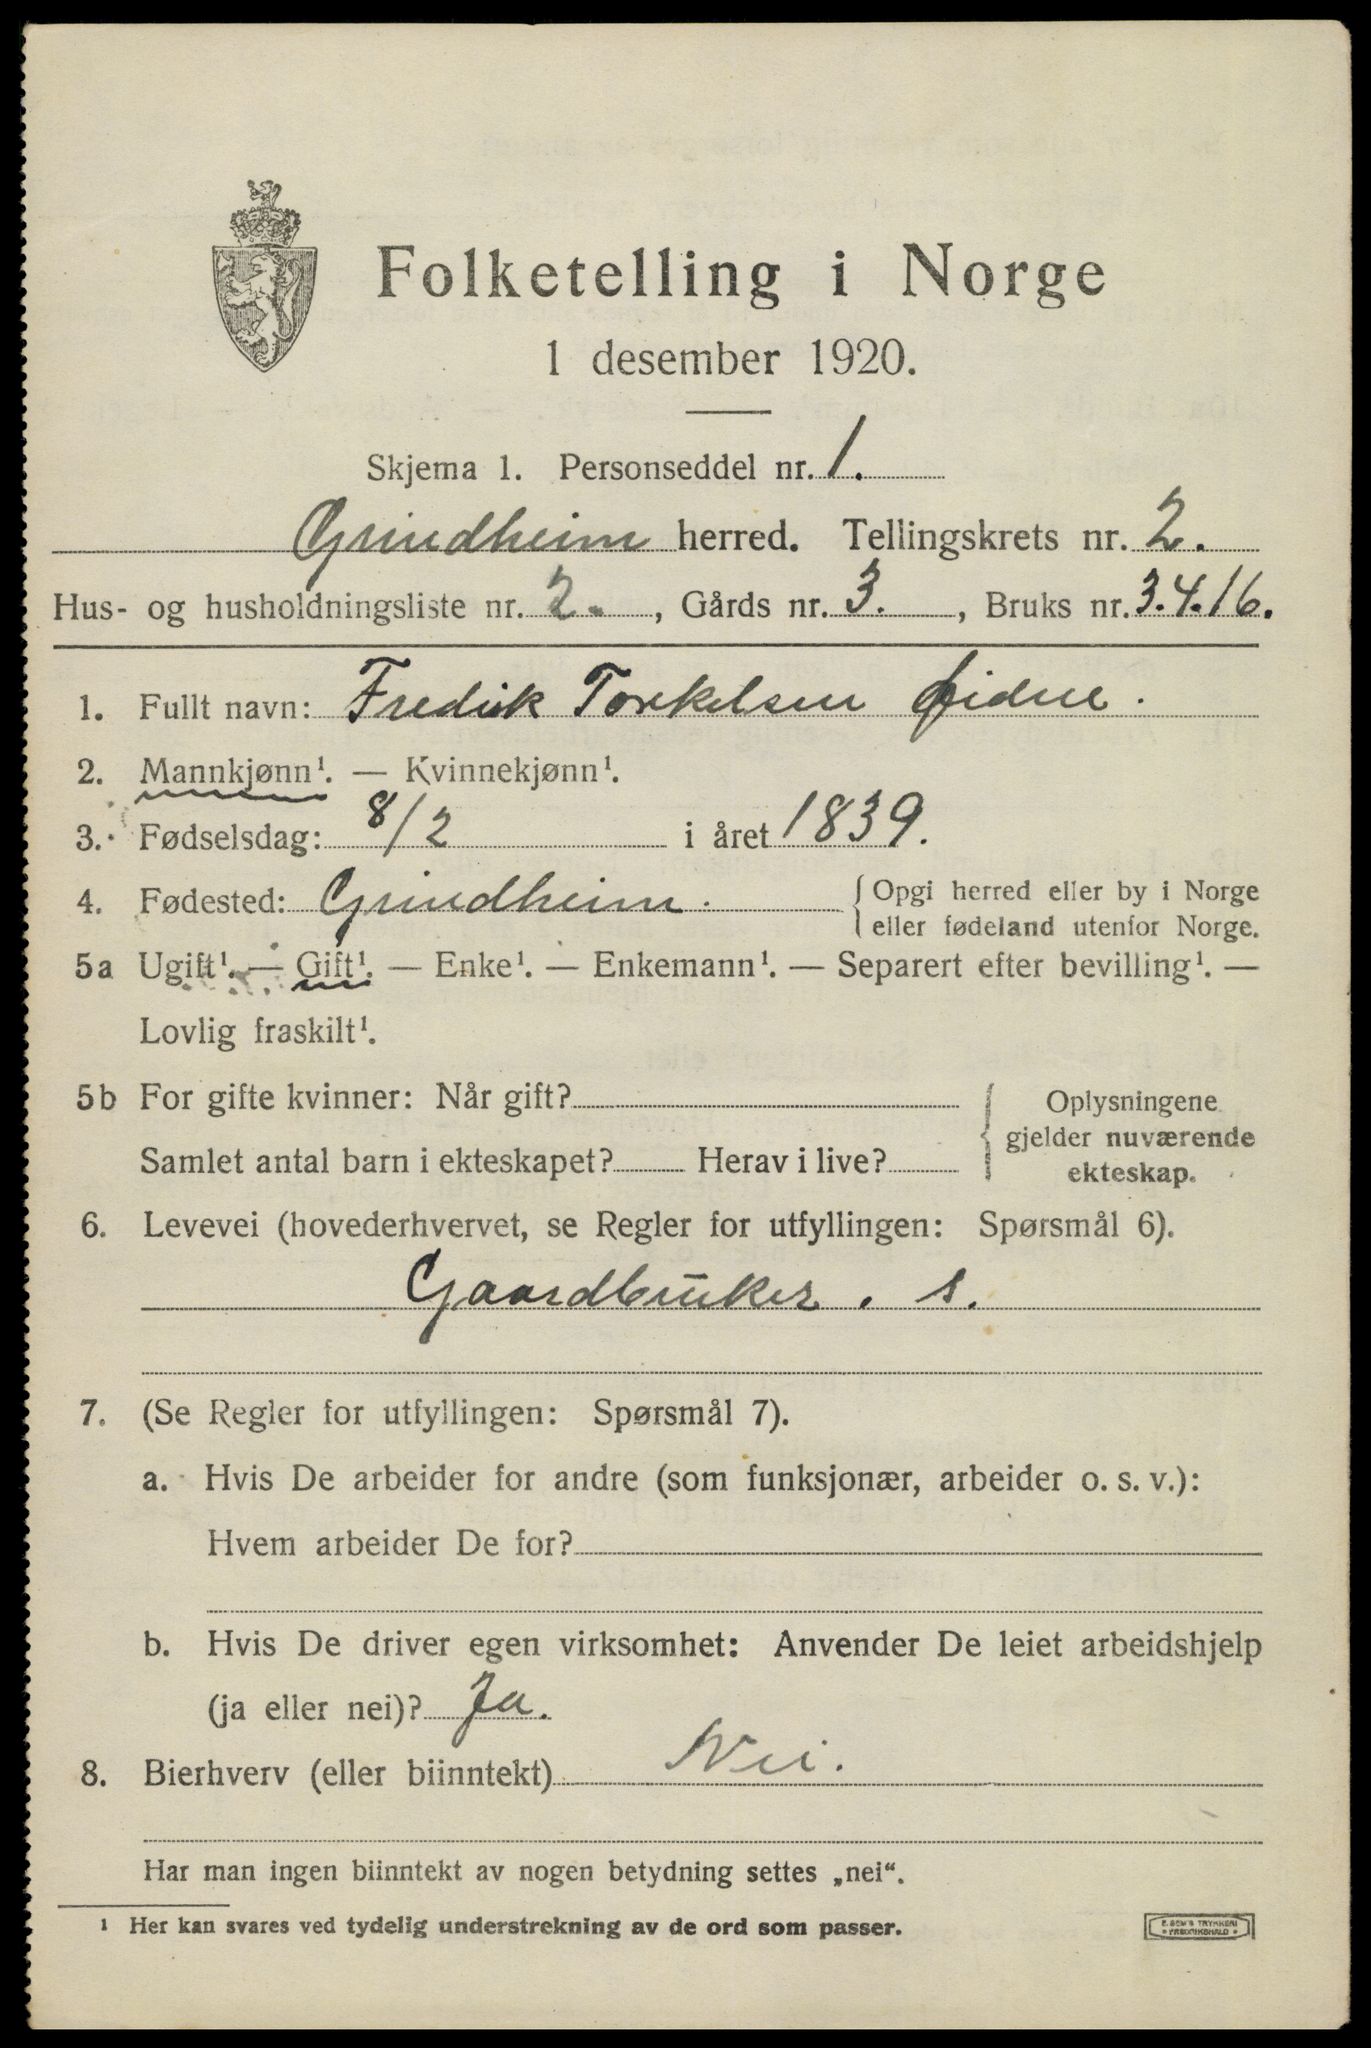 Folketelling i Norge
1 desember 1920.
Skjema 1. Personseddel nr. 1.
Grindheim herred. Tellingskrets nr. 2.
Hus- og husholdningsliste nr. 2. , Gårds nr. 3. , Bruks nr. 3.4.16.
1. Fullt navn: Fredrik Torkelsen Øidne.
2. Mannkjønn¹. — Kvinnekjønn¹.
3. Fødselsdag: 8/2 i året 1839.
4. Fødested: Grindheim. { Opgi herred eller by i Norge
eller fødeland utenfor Norge.
5a Ugift¹. — Gift¹. — Enke¹. — Enkemann¹. — Separert efter bevilling¹. —
Lovlig fraskilt¹.
5b For gifte kvinner: Når gift?
Samlet antal barn i ekteskapet? Herav i live?
{ Oplysningene
gjelder nuværende
ekteskap.
6. Levevei (hovederhvervet, se Regler for utfyllingen: Spørsmål 6).
Gaardbruker. s.
7. (Se Regler for utfyllingen: Spørsmål 7).
a. Hvis De arbeider for andre (som funksjonær, arbeider o. s. v.):
Hvem arbeider De for?
b. Hvis De driver egen virksomhet: Anvender De leiet arbeidshjelp
(ja eller nei)? Ja.
8. Bierhverv (eller biinntekt) Nei.
Har man ingen biinntekt av nogen betydning settes „nei“.
¹ Her kan svares ved tydelig understrekning av de ord som passer.
E. SEM'S TRYKKERI
FREDRIKSHALD